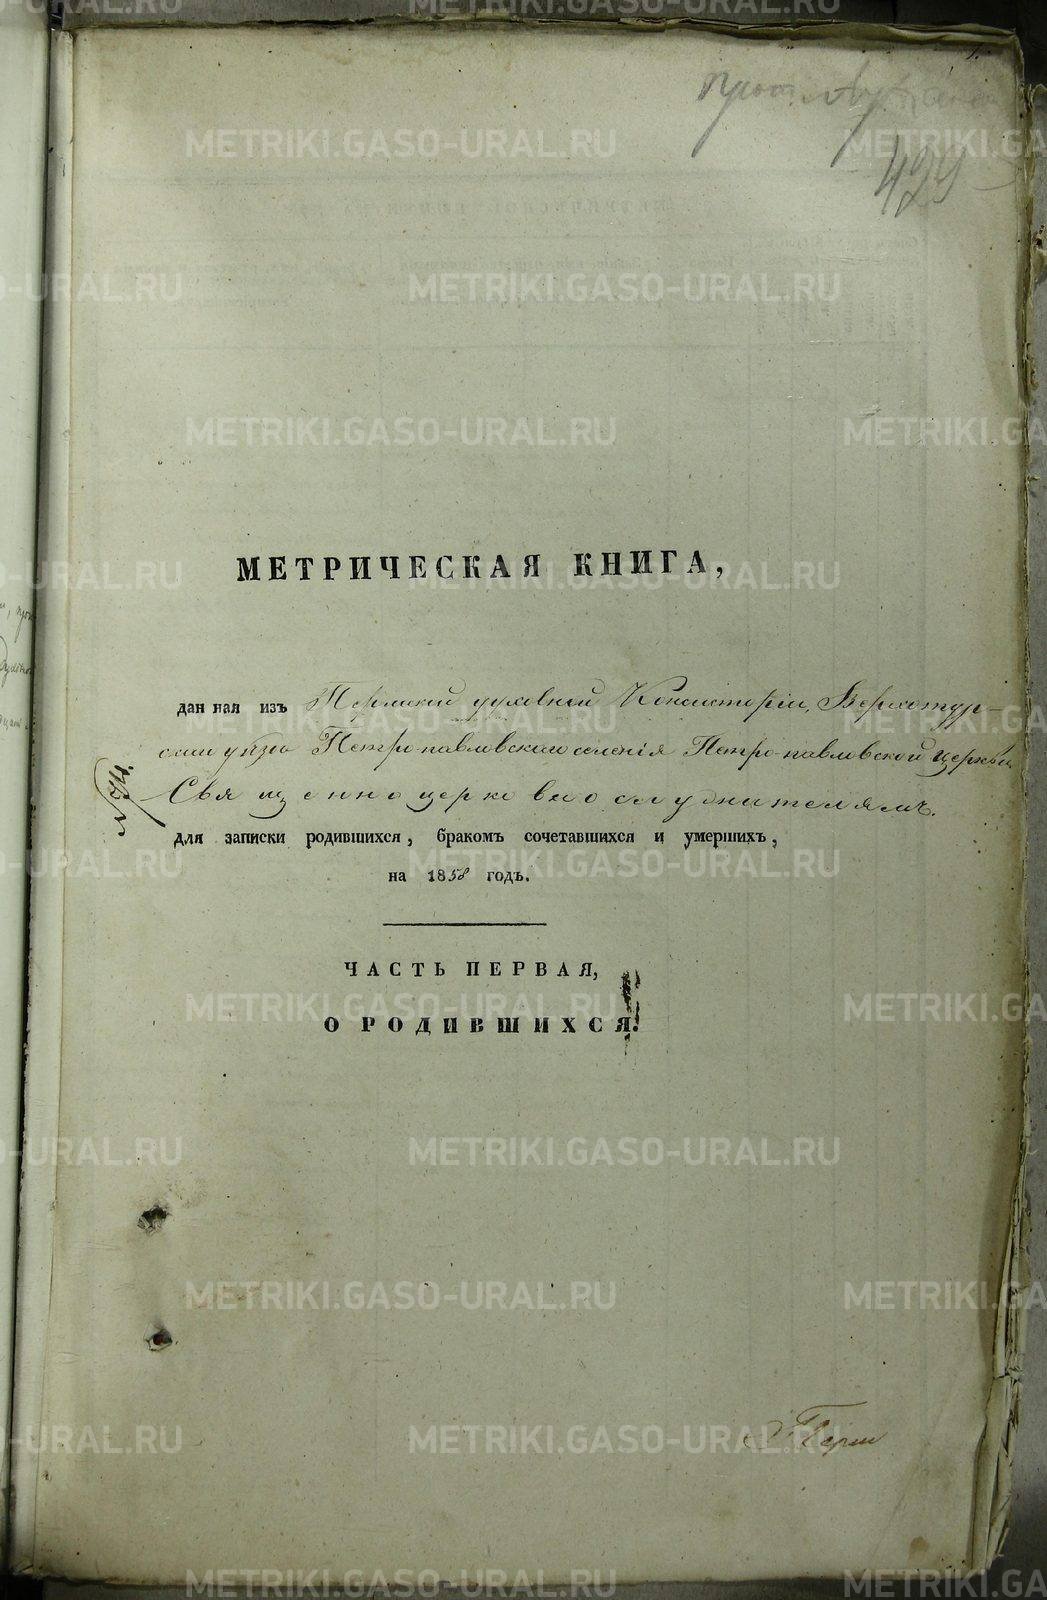 1.
429
МЕТРИЧЕСКАЯ КНИГА,
данная изъ Пермской духовной Консисторіи, Верхотур-
скаго уѣзда Петро-павловскаго селенія Петро-павловской церкви
Священноцерковнослужителямъ.
для записки родившихся, бракомъ сочетавшихся и умершихъ,
на 1858 годъ.
ЧАСТЬ ПЕРВАЯ,
О РОДИВШИХСЯ.
METRIKI.GASO-URAL.RU